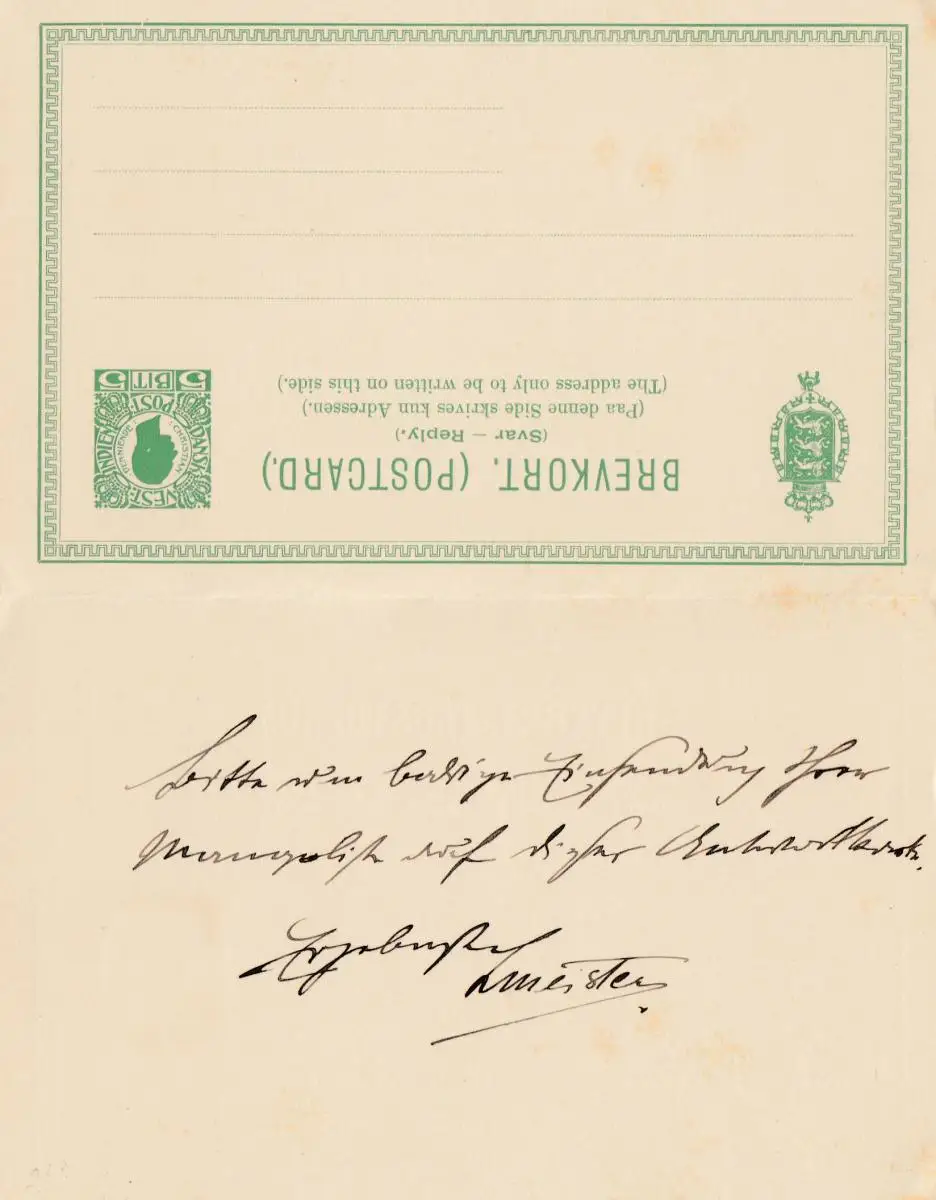 BREVKORT. (POSTCARD.)
(Svar — Reply.)
(Paa denne Side skrives kun Adressen.)
(The address only to be written on this side.)
DANSK VESTINDIEN POST
CHRISTIAN
5 BIT 5
Bitte um baldige Einsendung Ihrer
Mangeliste auf dieser Antwortkarte.
Ergebenst